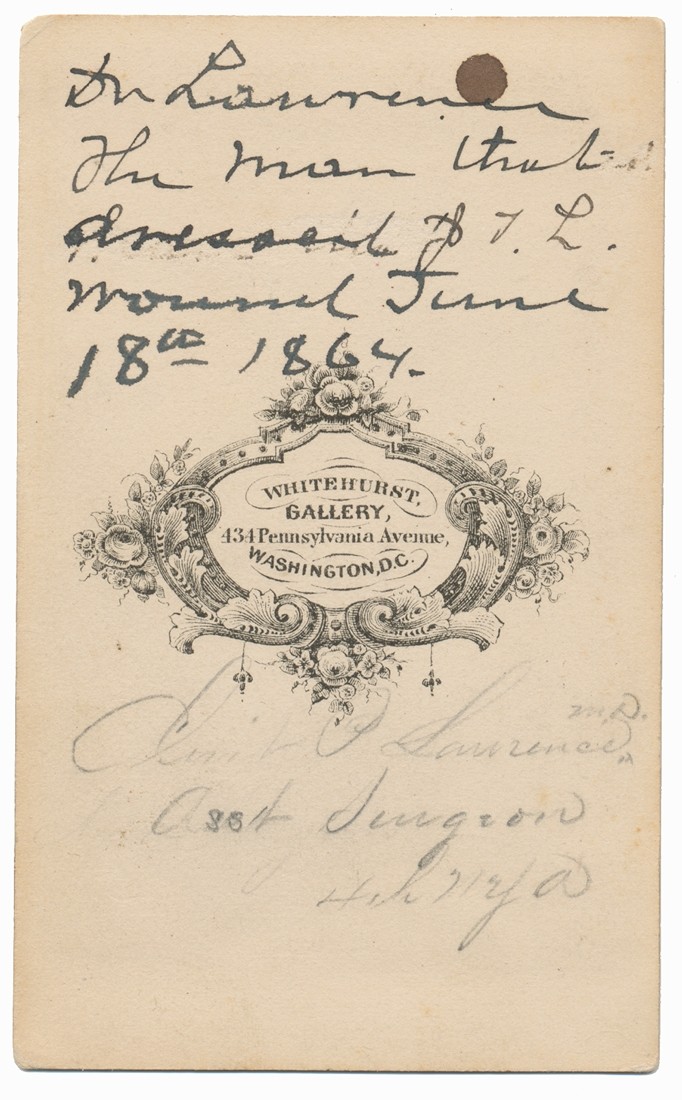 Dr Lawrence
The man that
dressed J. L.
wound June
18th 1864.
WHITEHURST,
GALLERY,
434 Pennsylvania Avenue,
WASHINGTON, D.C.
P Lawrence M.D.
Asst Surgeon
4th NYA